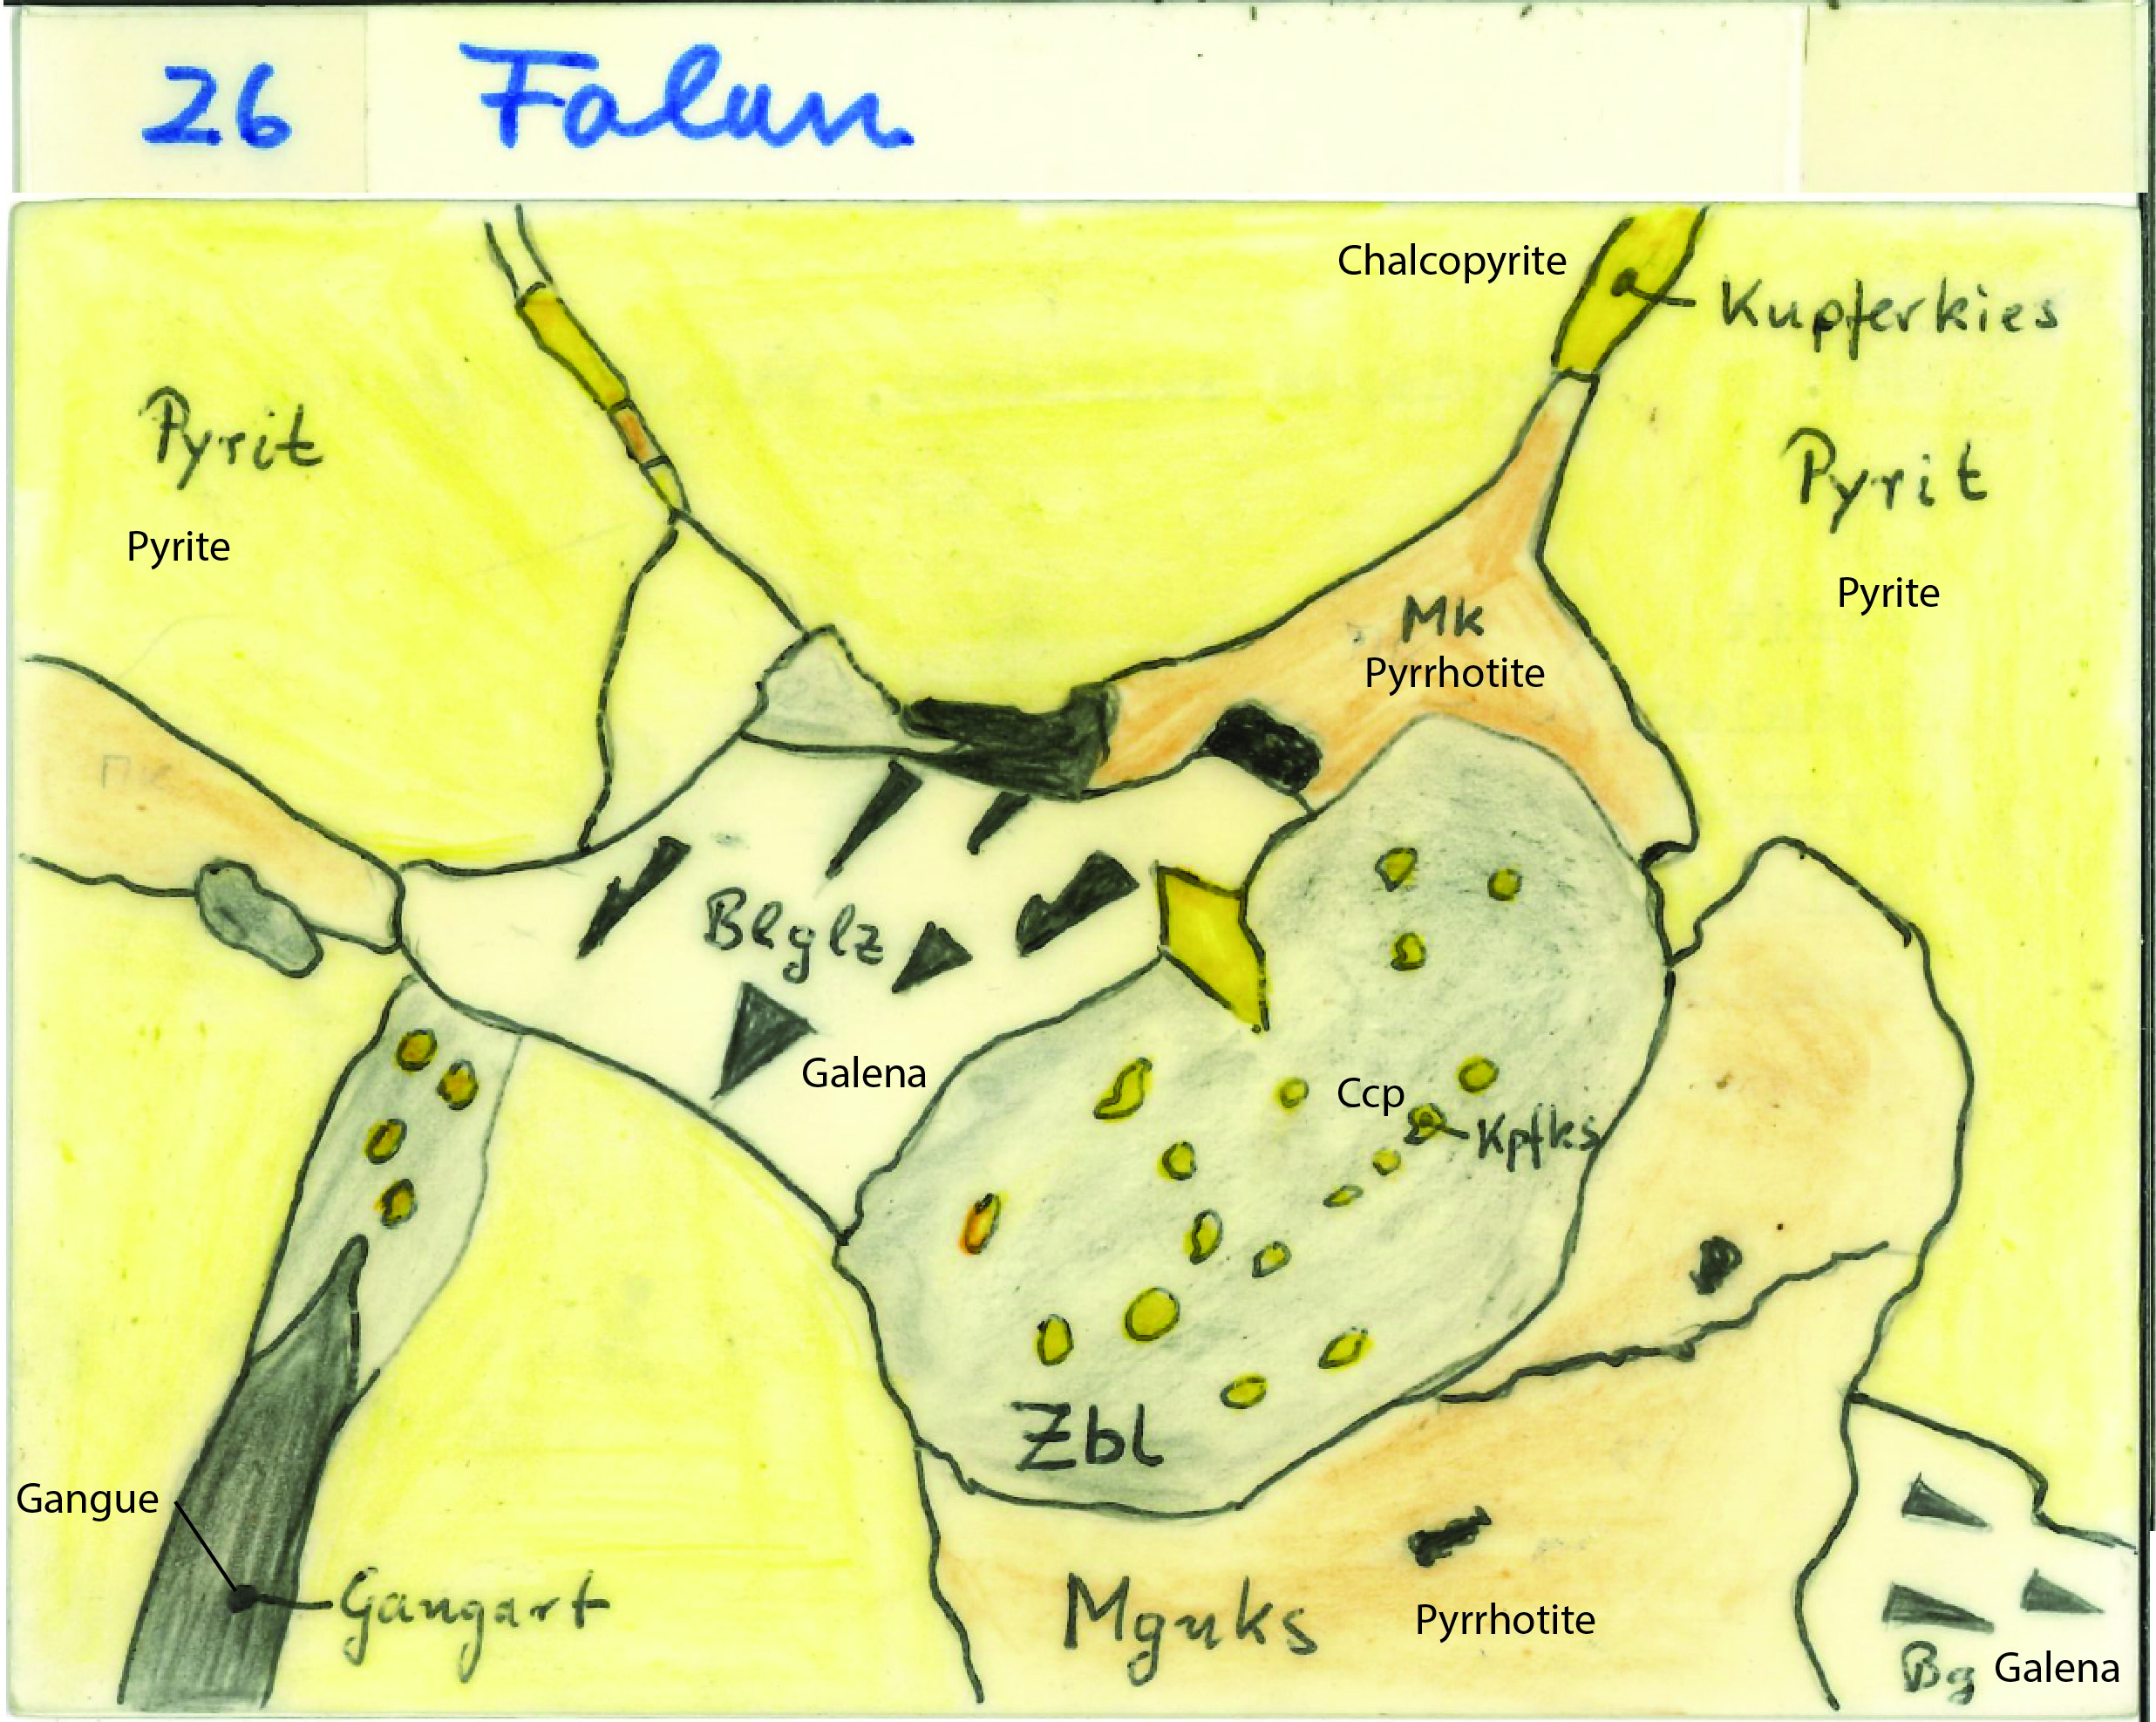 26 Falun
Chalcopyrite
Kupferkies
Pyrit
Pyrit
Pyrite
Pyrite
Mk
Pyrrhotite
Blglz
Galena
Ccp
Kpfks
Zbl
Gangue
Gangart
Mgnks
Pyrrhotite
Bg
Galena